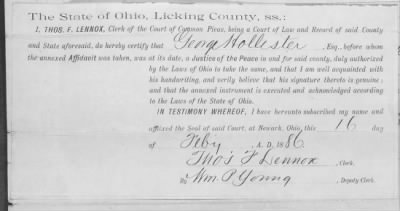 The State of Ohio, Licking County, ss.:
I, THOS. F. LENNOX, Clerk of the Court of Common Pleas, being a Court of Law and Record of said County
and State aforesaid, do hereby certify that George Hollister Esq., before whom
the annexed Affidavit was taken, was at its date, a Justice of the Peace in and for said county, duly authorized
by the Laws of Ohio to take the same, and that I am well acquainted with
his handwriting, and verily believe that his signature thereto is genuine;
and that the annexed instrument is executed and acknowledged
according to the Laws of the State of Ohio.
IN TESTIMONY WHEREOF, I have hereunto subscribed my name and
affixed the Seal of said Court, at Newark, Ohio, this 16 day
of Feby A. D. 1886.
Thos F Lennox, Clerk.
By Wm. P. Young, Deputy Clerk.